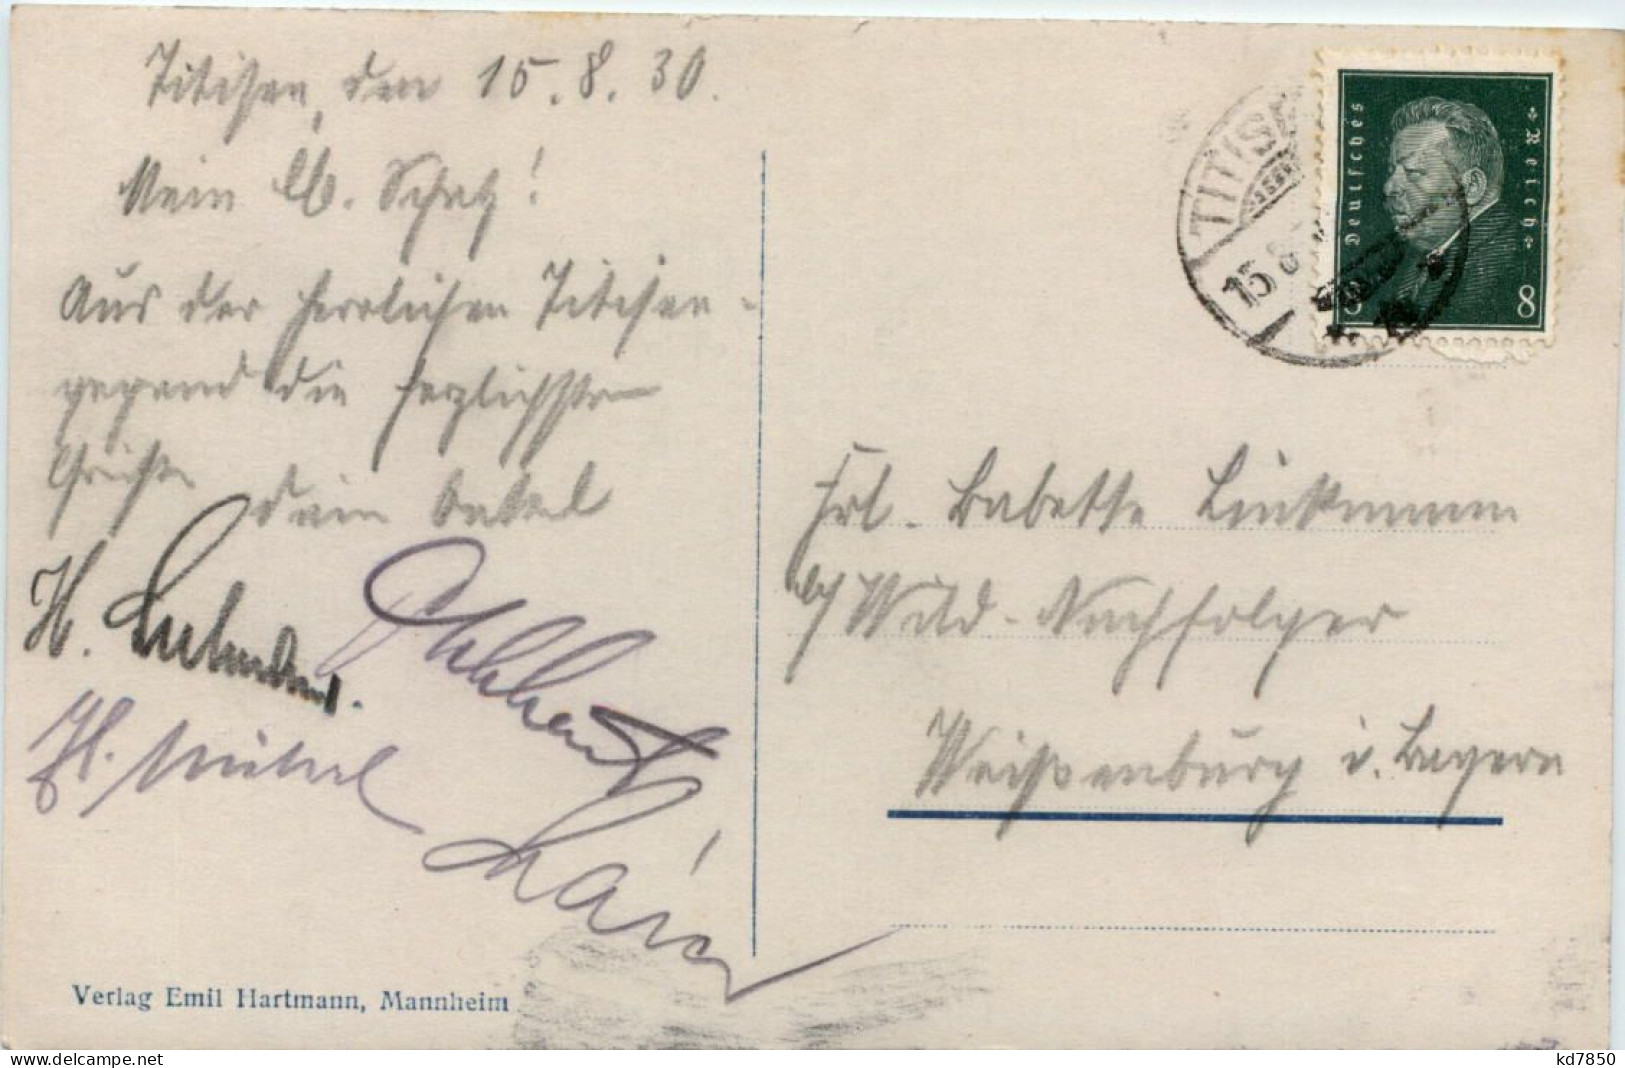 Titisee, den 15.8.30.
Mein lb. Schatz!
Aus der herrlichen Titisee-
gegend die herzlichsten
Grüße dein Onkel
H.
H.
Verlag Emil Hartmann, Mannheim
TITISEE
15.8.
Deutsches Reich
8 8
Frl. Babette Linkmann
b/ Wild-Nachfolger
Weißenburg i. Bayern
delcampe.net
kd7850